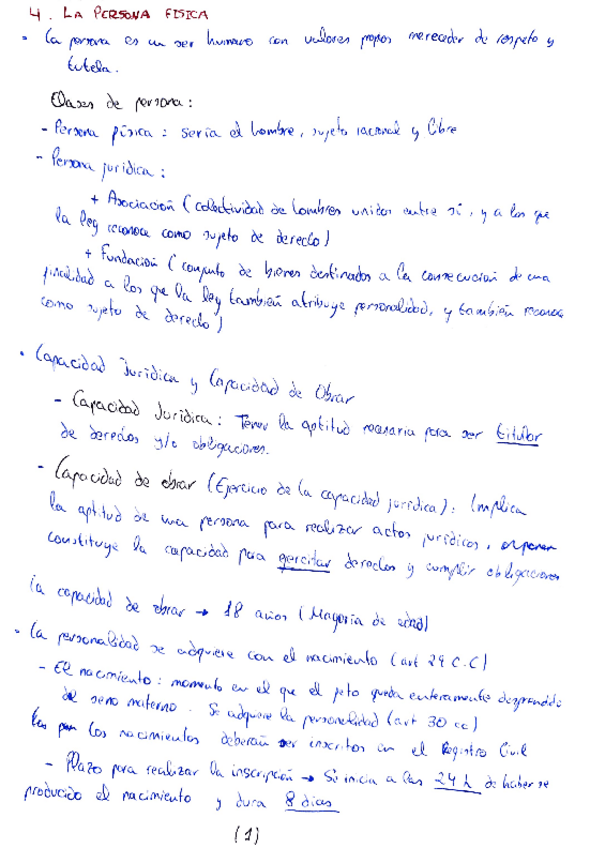 4. LA PERSONA FISICA
• La persona es un ser humano con valores propios merecedor de respeto y
tutela.
Clases de persona:
- Persona física: sería el hombre, sujeto racional y libre
- Persona juridica:
+ Asociación (colectividad de hombres unidos entre sí, y a los que
la ley reconoce como sujeto de derecho)
+ Fundación (conjunto de bienes destinados a la consecución de una
finalidad a los que la ley también atribuye personalidad, y también reconoce
como sujeto de derecho)
• Capacidad Juridica y Capacidad de Obrar
- Capacidad Juridica: Tener la aptitud necesaria para ser titular
de derechos y/o obligaciones.
- Capacidad de obrar (Ejercicio de la capacidad juridica): Implica
la aptitud de una persona para realizar actos juridicos,
constituye la capacidad para ejercitar derechos y cumplir obligaciones
La capacidad de obrar → 18 años (Mayoria de edad)
• La personalidad se adquiere con el nacimiento (art 29 C.C)
- El nacimiento: momento en el que el feto queda enteramente desprendido
de seno materno. Se adquiere la personalidad (art 30 cc)
Los nacimientos deberán ser inscritos en el Registro Civil
- Plazo para realizar la inscripción → Se inicia a las 24 h de haberse
producido el nacimiento y dura 8 dias
(1)